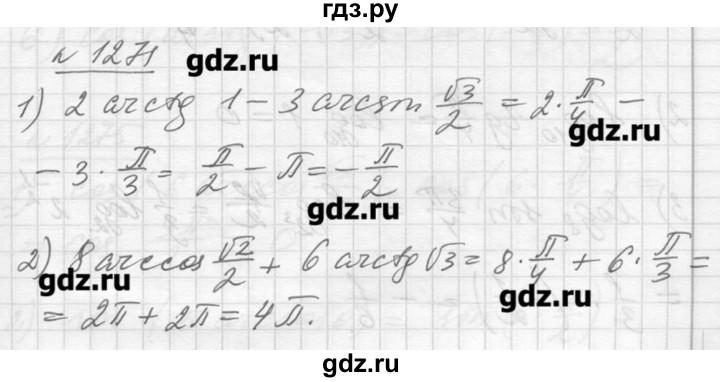 гдз.ру
№ 1271 gdz.ru
1) 2 arctg 1 − 3 arcsin √3/2 = 2 · π/4 −
gdz.ru
− 3 · π/3 = π/2 − π = − π/2
gdz.ru
2) 8 arccos √2/2 + 6 arctg √3 = 8 · π/4 + 6 · π/3 =
gdz.ru gdz.ru
= 2π + 2π = 4π.
gdz.ru